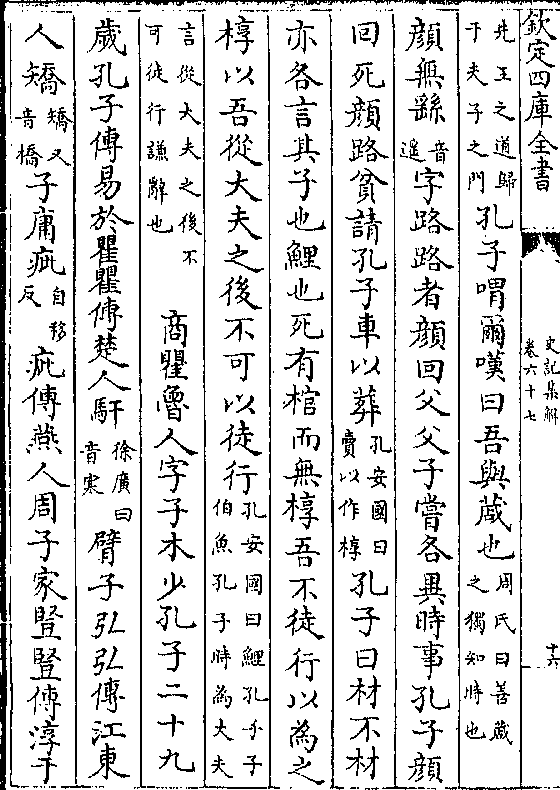 欽定四庫全書
史記集解
卷六十七
十六
先王之道歸
于夫子之門
孔子喟爾嘆曰吾與蒧也
周氏曰善蒧
之獨知時也
顔無繇
音
遥
字路路者顔回父父子嘗各異時事孔子顔
回死顔路貧請孔子車以葬
孔安國曰
賣以作椁
孔子曰材不材
亦各言其子也鯉也死有棺而無椁吾不徒行以為之
椁以吾從大夫之後不可以徒行
孔安國曰鯉孔子子
伯魚孔子時為大夫
言從大夫之後不
可徒行謙辭也
商瞿魯人字子木少孔子二十九
歲孔子傳易於瞿瞿傳楚人馯
徐廣曰
音寒
臂子弘弘傳江東
人矯
矯又
音橋
子庸疵
自移
反
疵傳燕人周子家豎豎傳淳于